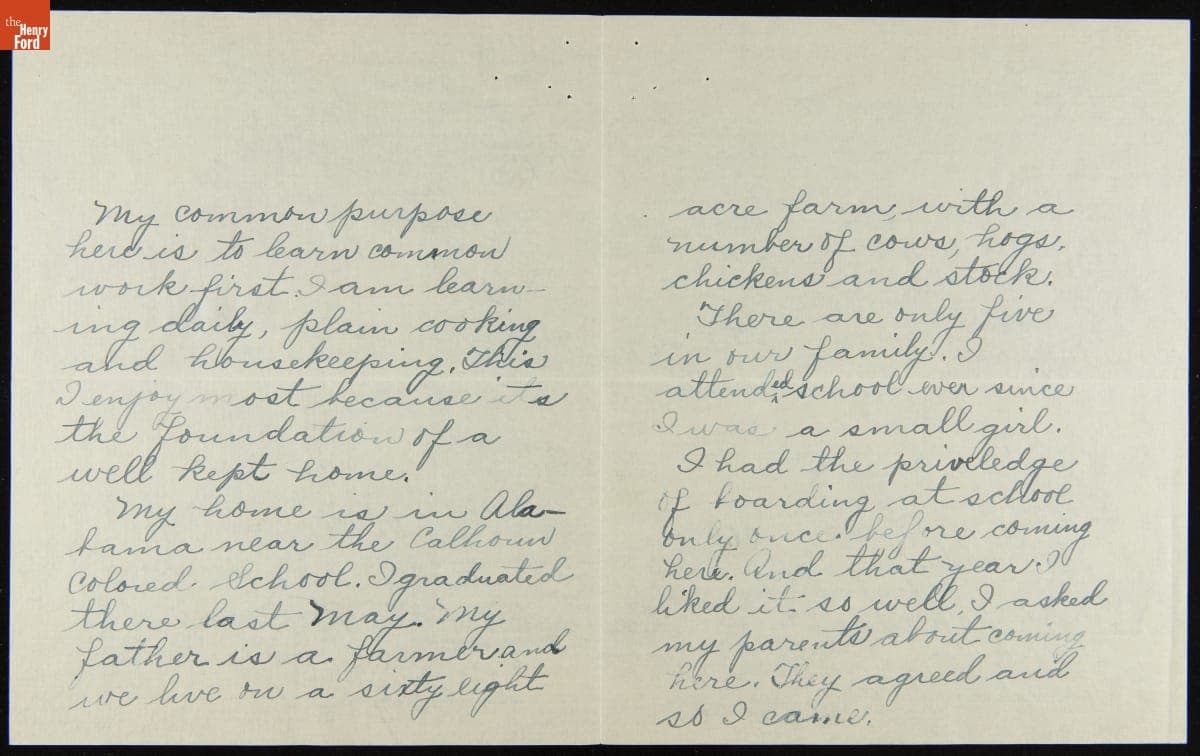 the
Henry
Ford
My common purpose
here is to learn common
work first. I am learn-
ing daily, plain cooking
and housekeeping. This
I enjoy most because its
the foundation of a
well kept home.
My home is in Ala-
bama near the Calhoun
Colored School. I graduated
there last May. My
father is a farmer and
we live on a sixty eight
acre farm, with a
number of cows, hogs,
chickens and stock.
There are only five
in our family. I
attended school ever since
I was a small girl.
I had the priveledge
of boarding at school
only once before coming
here. And that year I
liked it so well, I asked
my parents about coming
here. They agreed and
so I came.